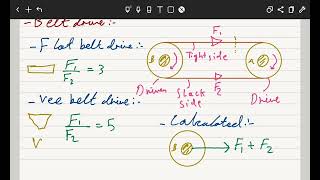 - Belt drive:-
- Flat belt drive:-
F1/F2 = 3
- Vee belt drive:-
F1/F2 = 5
V
F1
Tight side
F2
B
A
Driven
Slack side
Drive
- Calculated:-
B
F1 + F2